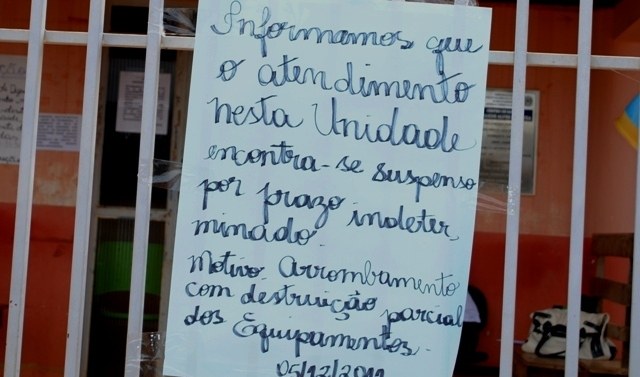 Informamos que
o atendimento
nesta Unidade
encontra-se suspenso
por prazo indeter
minado.
Motivo: Arrombamento
com destruição parcial
dos Equipamentos.
05/12/2011